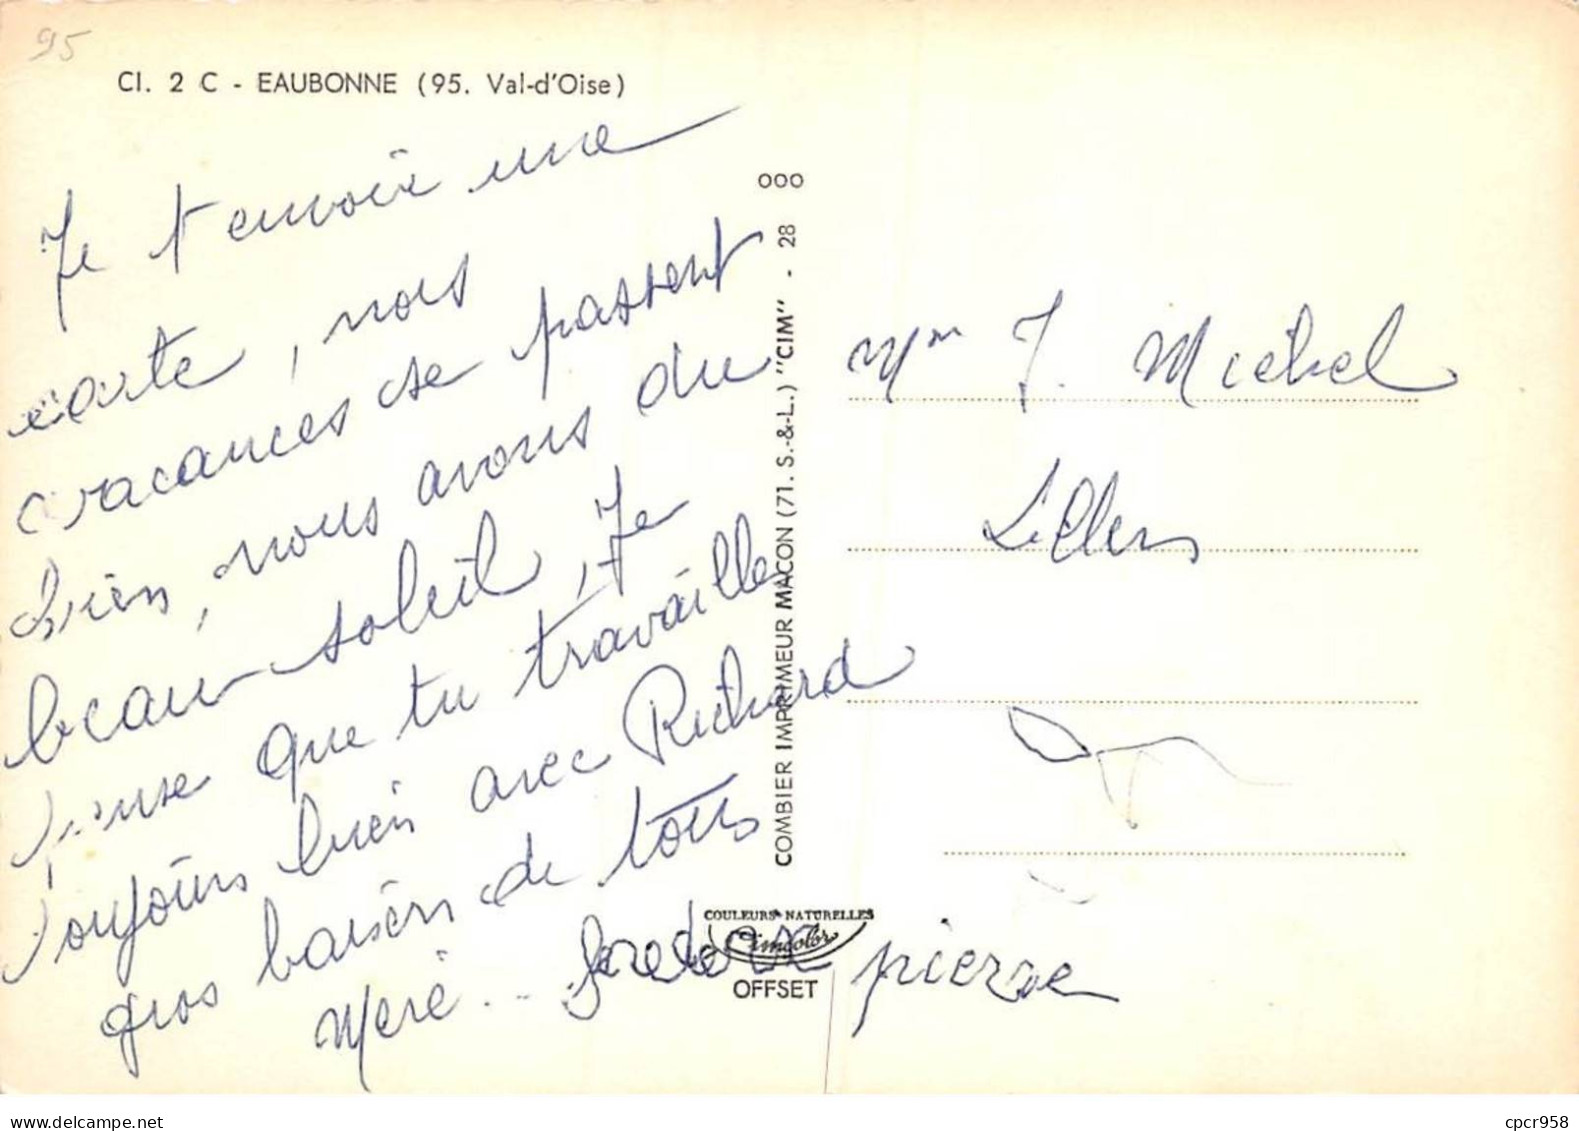 95
Cl. 2 C - EAUBONNE (95. Val-d'Oise)
Je t envoie une
carte, nos
vacances se passent
bien, nous avons du
beau soleil, Je
pense que tu travailles
toujours bien avec Richard
gros baisers de tous
Meré . . pierre
Mm J. Michel
Lillers
COMBIER IMPRIMEUR MACON (71. S.-&-L.) "CIM" - 28 000
COULEURS NATURELLES
Cimcolor
OFFSET
cpcr958